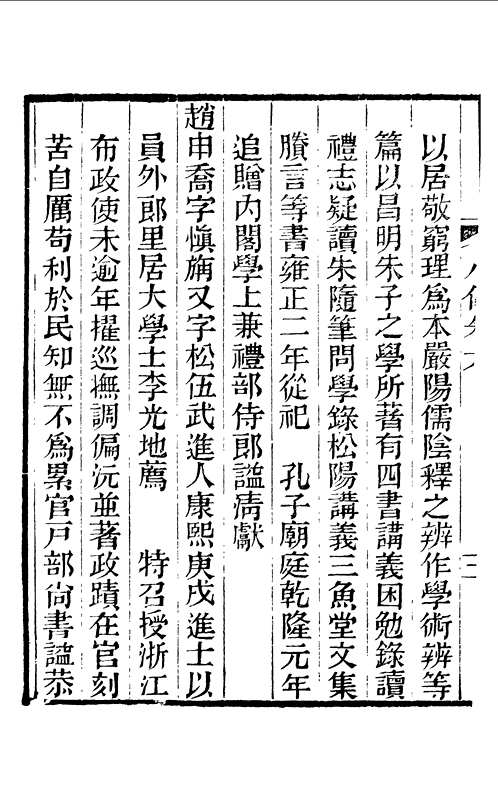 以居敬窮理爲本嚴陽儒陰釋之辨作學術辨等
篇以昌明朱子之學所著有四書講義困勉錄讀
禮志疑讀朱隨筆問學錄松陽講義三魚堂文集
賸言等書雍正二年從祀　孔子廟庭乾隆元年
追贈內閣學上兼禮部侍郎謚淸獻
趙申喬字愼旃又字松伍武進人康熙庚戌進士以
員外郎里居大學士李光地薦　特召授浙江
布政使未逾年擢巡撫調偏沅並著政蹟在官刻
苦自厲苟利於民知無不爲累官戸部尙書謚恭